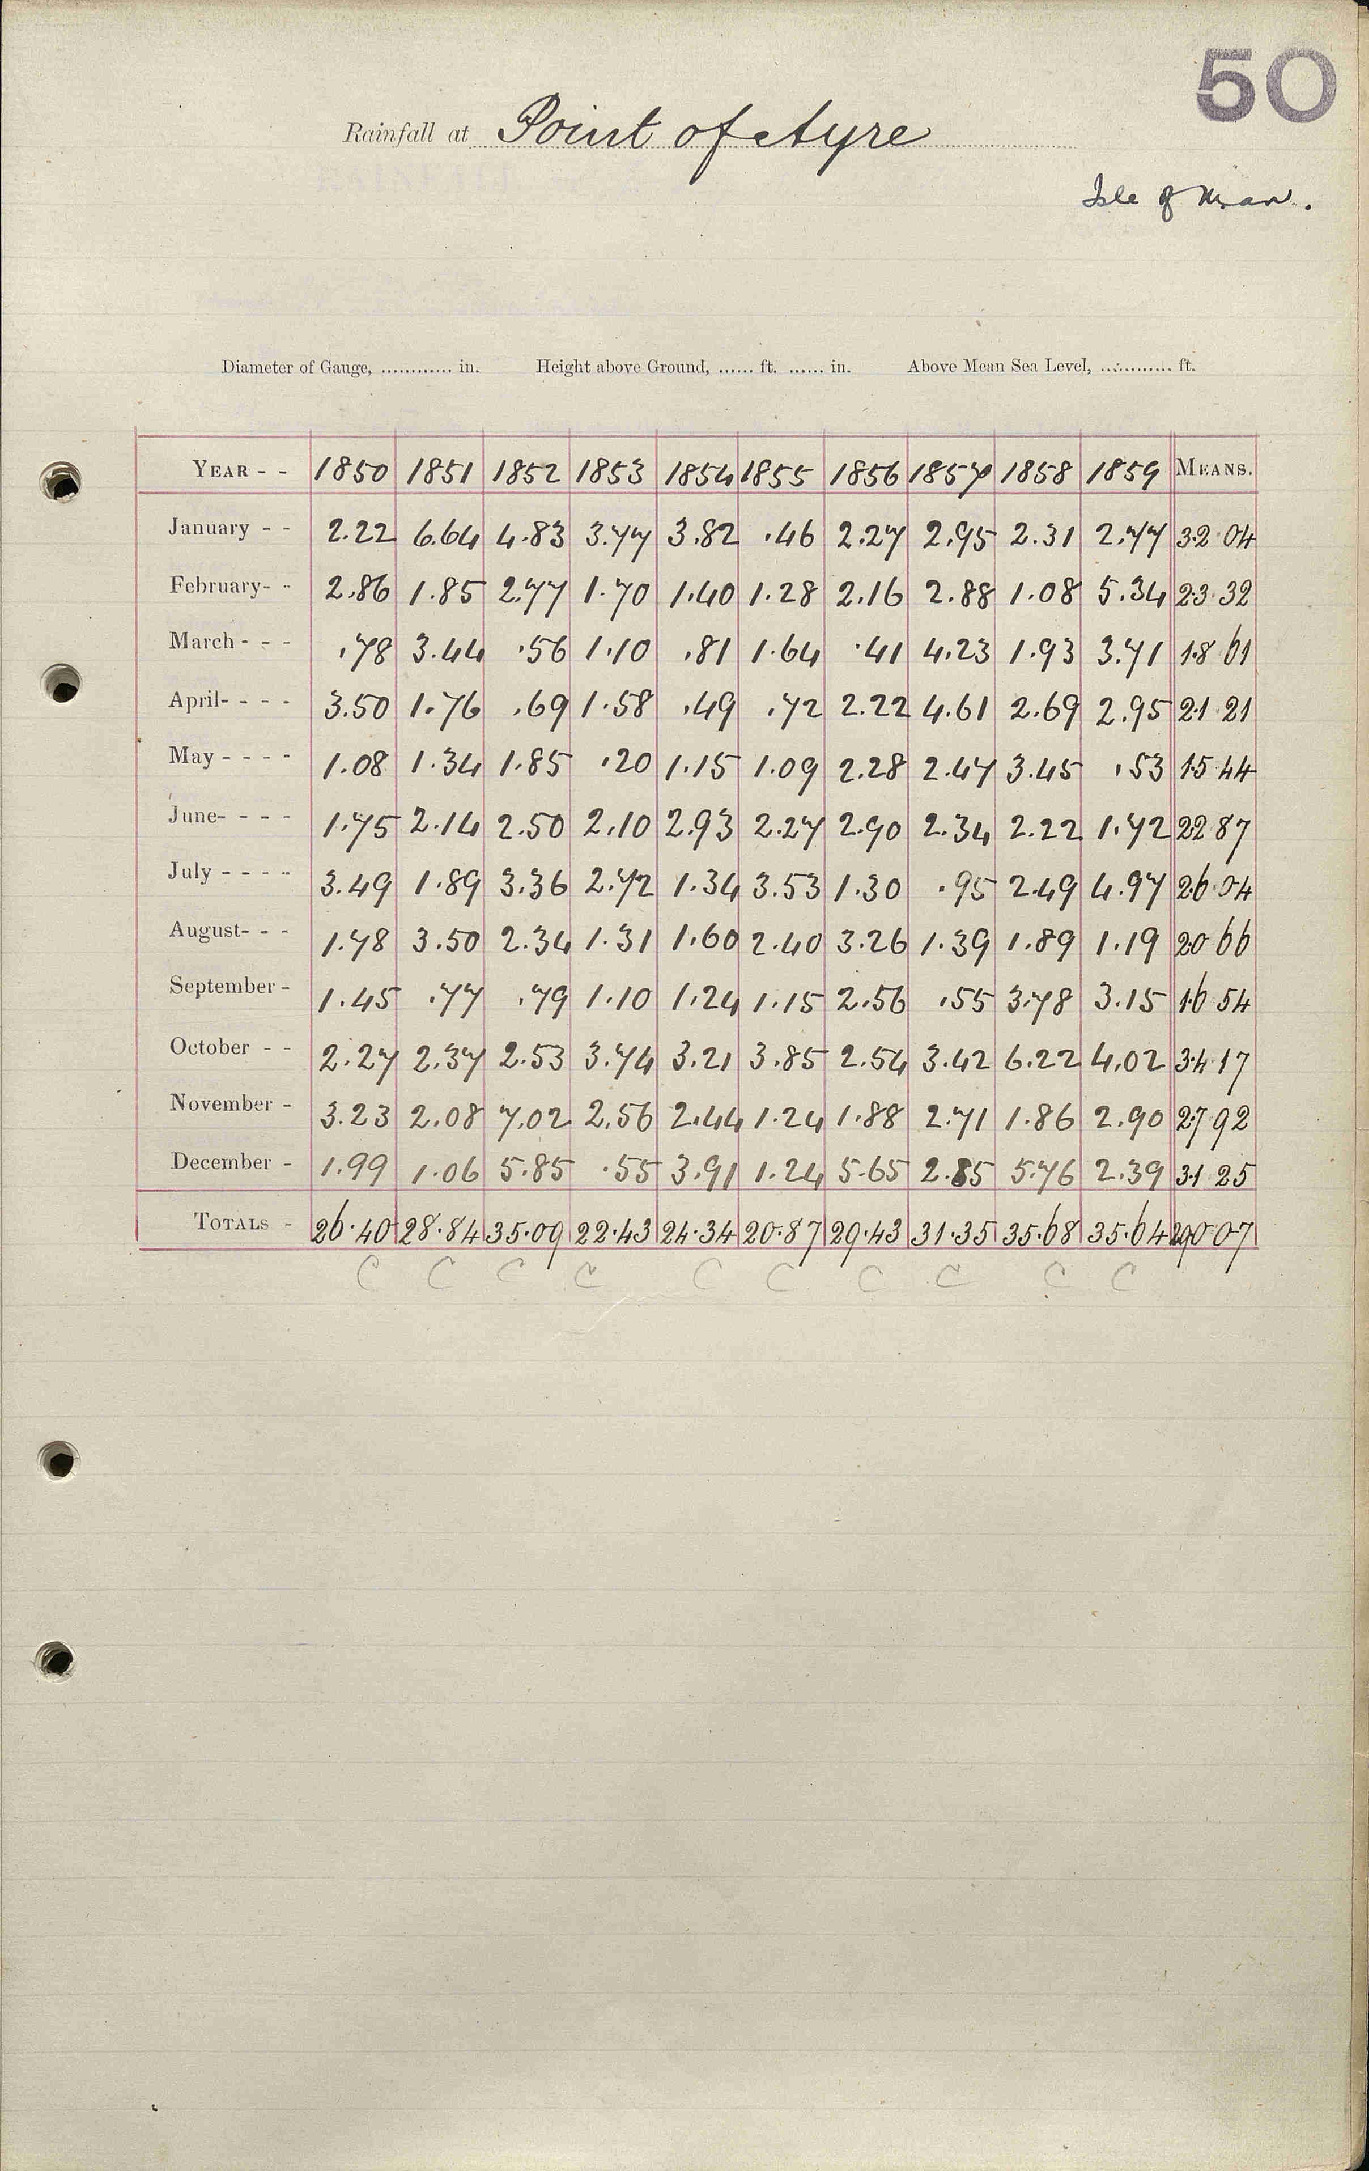 50
Rainfall at Point of Ayre
Isle of Man.
Diameter of Gauge, ............ in. Height above Ground, ...... ft. ...... in. Above Mean Sea Level, ............ ft.
YEAR - - 1850 1851 1852 1853 1854 1855 1856 1857 1858 1859 MEANS.
January - - 2.22 6.64 4.83 3.77 3.82 .46 2.27 2.95 2.31 2.77 32 04
February- - 2.86 1.85 2.77 1.70 1.40 1.28 2.16 2.88 1.08 5.34 23 32
March - - - .78 3.44 .56 1.10 .81 1.64 .41 4.23 1.93 3.71 18 61
April- - - - 3.50 1.76 .69 1.58 .49 .72 2.22 4.61 2.69 2.95 21 21
May - - - - 1.08 1.34 1.85 .20 1.15 1.09 2.28 2.47 3.45 .53 15 44
June- - - - 1.75 2.14 2.50 2.10 2.93 2.27 2.90 2.34 2.22 1.72 22 87
July - - - - 3.49 1.89 3.36 2.72 1.34 3.53 1.30 .95 2.49 4.97 26 04
August- - - 1.78 3.50 2.34 1.31 1.60 2.40 3.26 1.39 1.89 1.19 20 66
September - 1.45 .77 .79 1.10 1.24 1.15 2.56 .55 3.78 3.15 16 54
October - - 2.27 2.37 2.53 3.74 3.21 3.85 2.54 3.42 6.22 4.02 34 17
November - 3.23 2.08 7.02 2.56 2.44 1.24 1.88 2.71 1.86 2.90 27 92
December - 1.99 1.06 5.85 .55 3.91 1.24 5.65 2.85 5.76 2.39 31 25
TOTALS - 26.40 28.84 35.09 22.43 24.34 20.87 29.43 31.35 35.68 35.64 290 07
C C C C C C C C C C